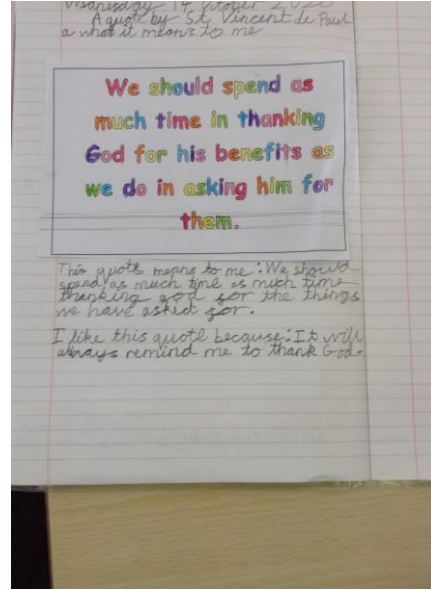 Wednesday 14 October
A quote by St. Vincent de Paul
a what it means to me
We should spend as
much time in thanking
God for his benefits as
we do in asking him for
them.
This quote means to me: We should
spend as much time as much time
thanking god for the things
we have asked for.
I like this quote because: It will
always remind me to thank God.